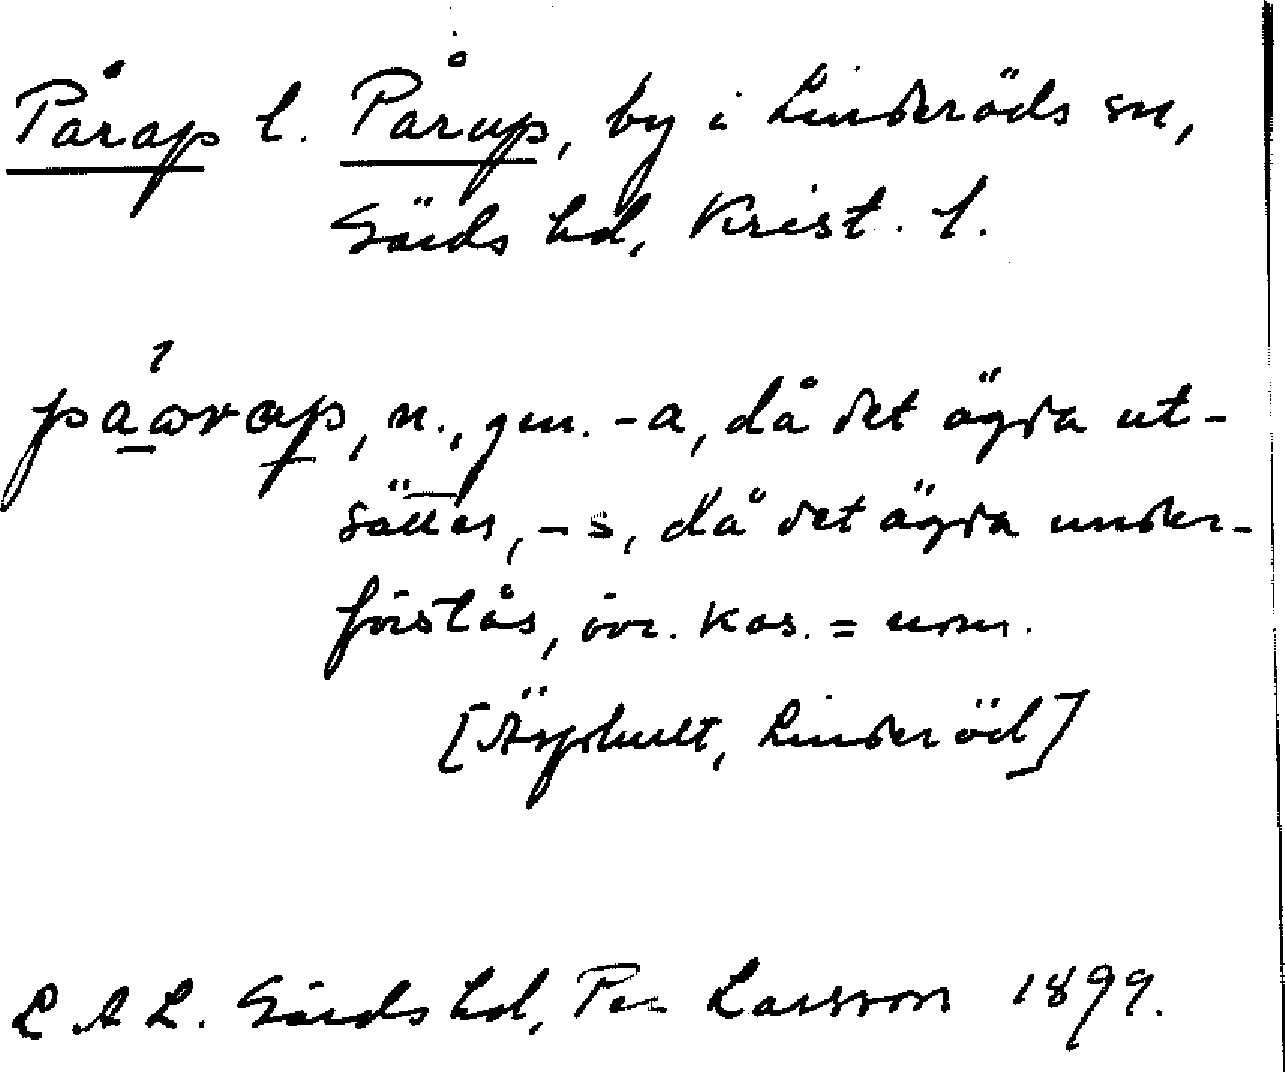 Pårap l. Pårup, by i Linderöds sn,
Gärds hd, Krist. l.
n., gen. -a, då det ägda ut-
sättes, -s, då det ägda under-
förstås, övr. kas. = nom.
[Äsphult, Linderöd]
L A L. Gärds hd, Per Larsson 1899.